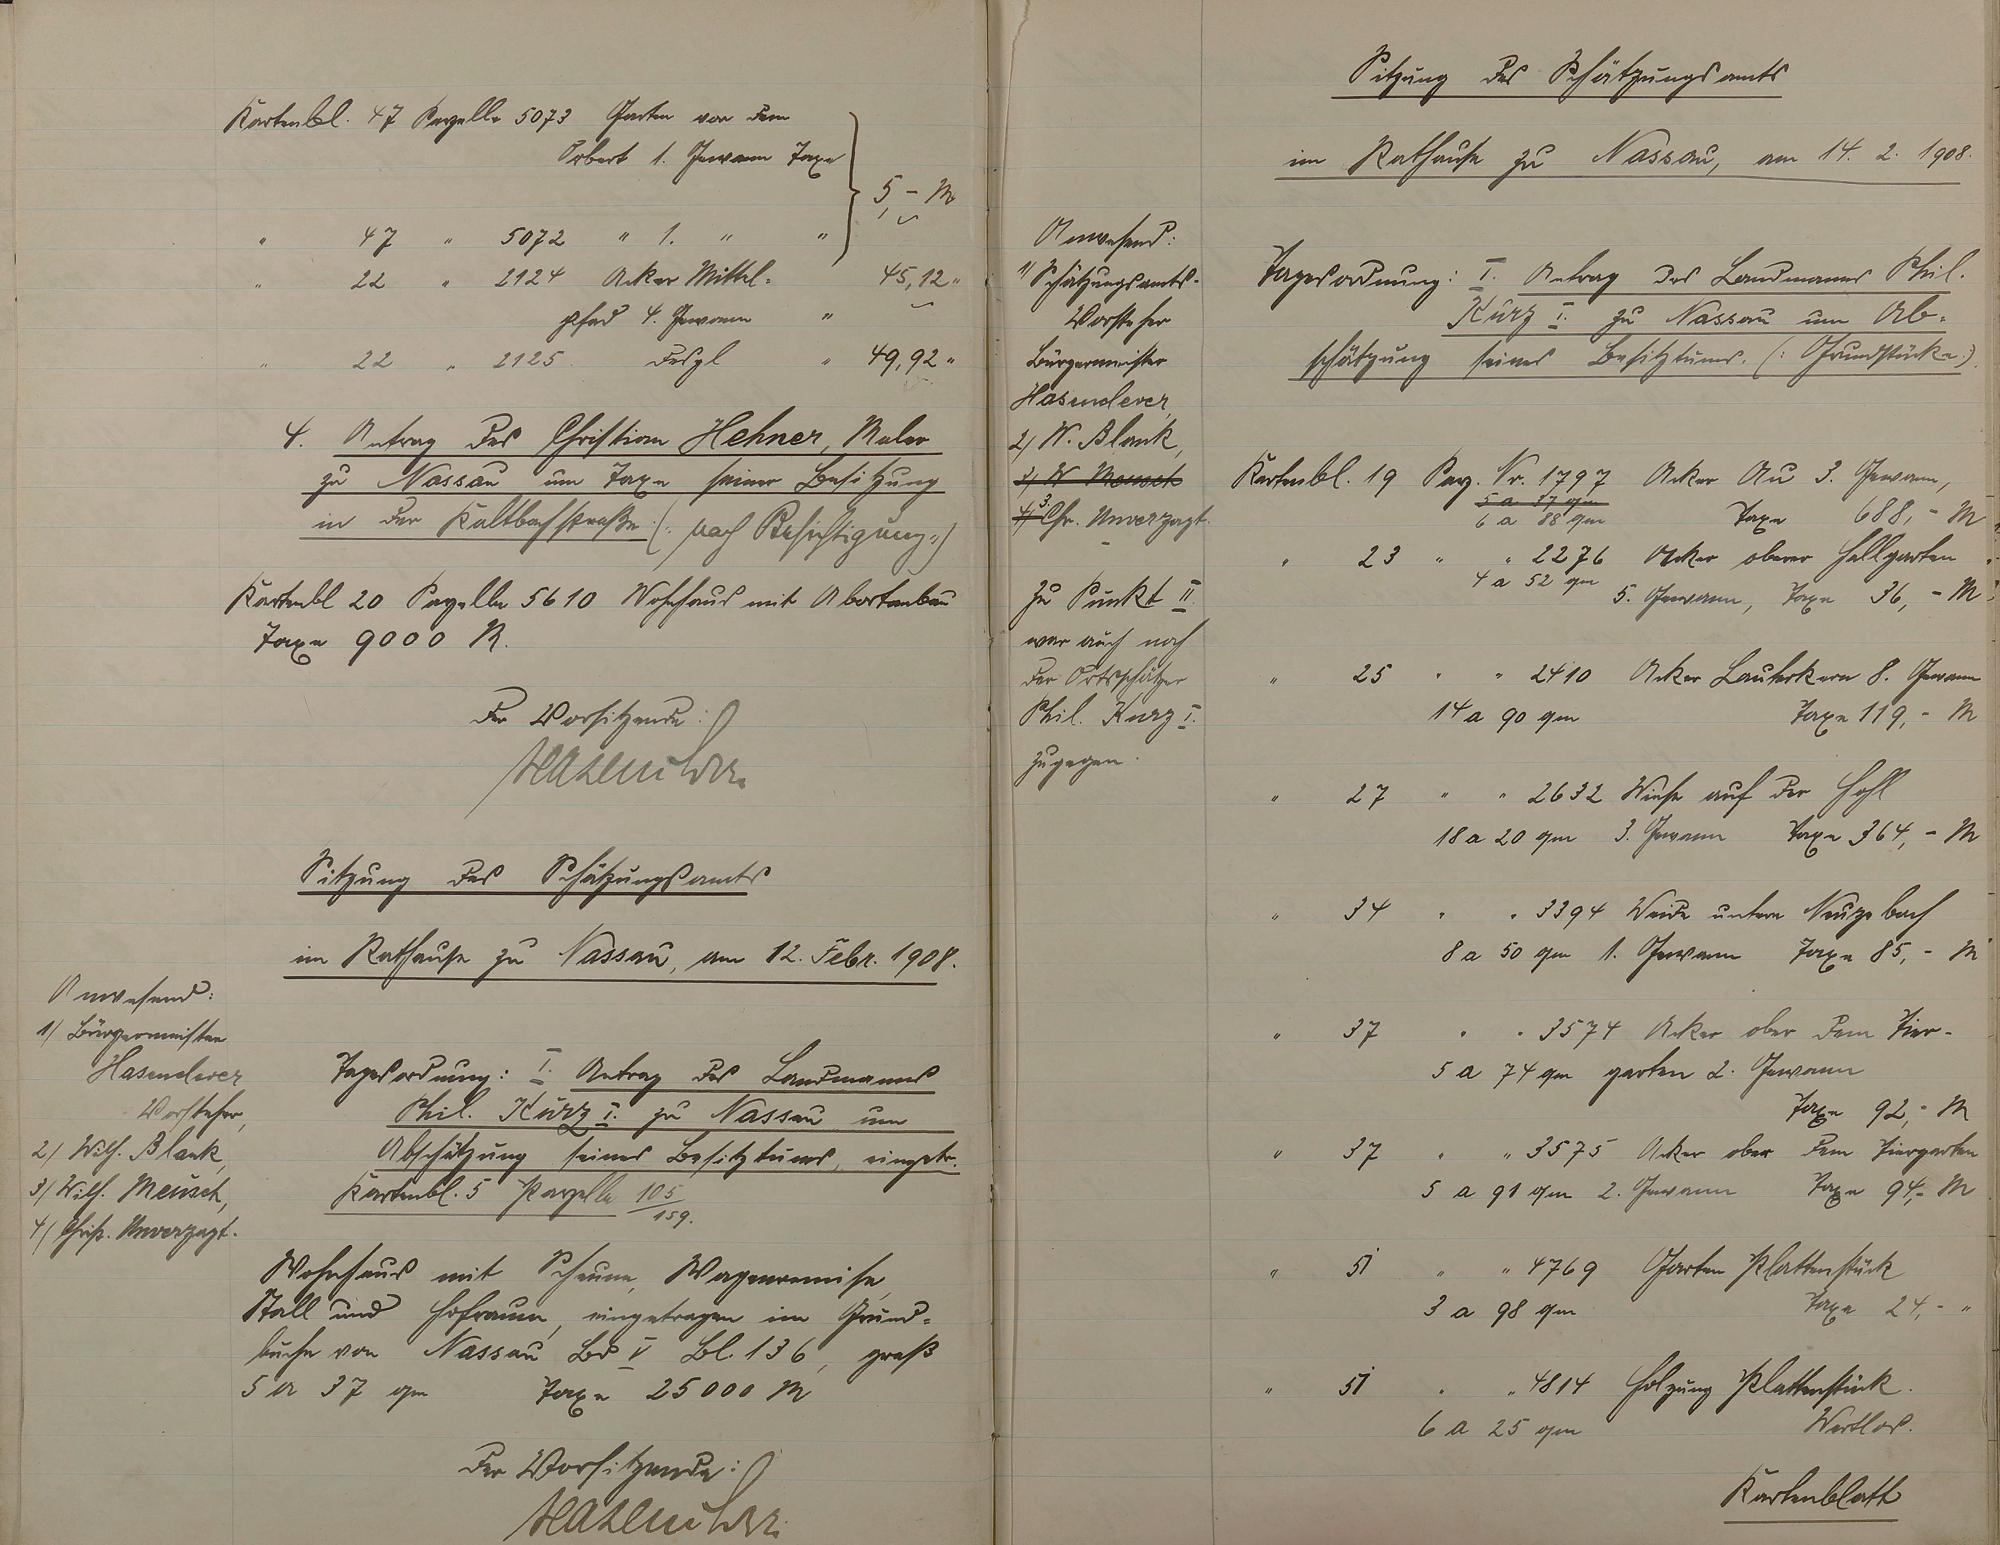 Kartenbl. 47 Parzelle 5073 Garten vor dem
Orbert 1. Gewann Taxe
5,- M
" 47 " 5072 " 1. " "
" 22 " 2124 Acker Mittel- 45,12 "
pfad 4. Gewann "
" 22 " 2125 desgl " 49,92 "
4. Antrag des Christian Hehner, Maler
zu Nassau um Taxe seiner Besitzung
in der Kaltbachstraße (: nach Besichtigung :)
Kartenbl 20 Parzelle 5610 Wohnhaus mit Abortanbau
Taxe 9000 M.
Der Vorsitzende:
Hasenclever
Sitzung des Schätzungsamts
im Rathause zu Nassau, am 12. Febr. 1908.
Anwesend:
1) Bürgermeister
Hasenclever
Vorsteher,
2) Wilh. Blank,
3) Wilh. Meusch,
4) Christ. Unverzagt.
Tagesordnung: I. Antrag des Landmanns
Phil. Kurz I. zu Nassau um
Abschätzung seines Besitztums, eingetr.
Kartenbl. 5 Parzelle 105/159.
Wohnhaus mit Scheune, Wagenremise,
Stall und Hofraum, eingetragen im Grund-
buche von Nassau Bd V Bl. 136, groß
5 a 37 qm Taxe 25000 M
Der Vorsitzende:
Hasenclever
Sitzung des Schätzungsamts
im Rathause zu Nassau, am 14. 2. 1908.
Anwesend:
1) Schätzungsamts-
Vorsteher
Bürgermeister
Hasenclever,
2) W. Blank,
3) W Meusch
4) 3. Chr. Unverzagt.
Zu Punkt II
war auch noch
der Ortsschätzer
Phil. Kurz I.
zugegen.
Tagesordnung: I. Antrag des Landmanns Phil.
Kurz I. zu Nassau um Ab-
schätzung seines Besitztums. (: Grundstücke :)
Kartenbl. 19 Parz. Nr. 1797 Acker Au 3. Gewann,
5 a 37 qm
6 a 88 qm Taxe 688,- M
" 23 " " 2276 Acker oberer Hallgarten
4 a 52 qm 5. Gewann, Taxe 36,- M
" 25 " " 2410 Acker Lauterkern 8. Gewann
14 a 90 qm Taxe 119,- M
" 27 " " 2632 Wiese auf der Hohl
18 a 20 qm 3. Gewann Taxe 364,- M
" 34 " " 3394 Weide untere Neuzebach
8 a 50 qm 1. Gewann Taxe 85,- M
" 37 " " 3574 Acker ober dem Tier-
5 a 74 qm garten 2. Gewann
Taxe 92,- M
" 37 " " 3575 Acker ober dem Tiergarten
5 a 91 qm 2. Gewann Taxe 94,- M
" 51 " " 4769 Garten Plattenstück
3 a 98 qm Taxe 24,- "
" 51 " " 4814 Holzung Plattenstück.
6 a 25 qm Wertlos.
Kartenblatt